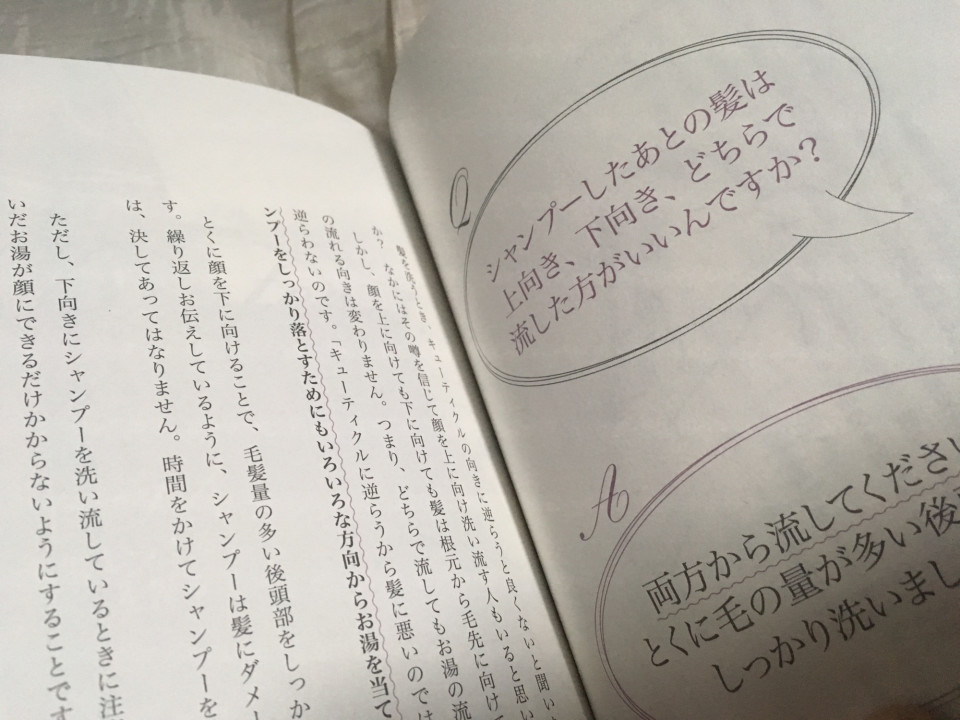 Q
シャンプーしたあとの髪は
上向き、下向き、どちらで
流した方がいいんですか?
A
両方から流してください
とくに毛の量が多い後
しっかり洗いまし
髪を洗うとき、キューティクルの向きに逆らうと良くないと聞い
か? なかにはその噂を信じて顔を上に向け洗い流す人もいると思い
しかし、顔を上に向けても下に向けても髪は根元から毛先に向け
の流れる向きは変わりません。つまり、どちらで流してもお湯の流
逆らわないのです。「キューティクルに逆らうから髪に悪いのでは
ンプーをしっかり落とすためにもいろいろな方向からお湯を当て
とくに顔を下に向けることで、毛髪量の多い後頭部をしっか
す。繰り返しお伝えしているように、シャンプーは髪にダメー
は、決してあってはなりません。時間をかけてシャンプーを
ただし、下向きにシャンプーを洗い流しているときに注
いだお湯が顔にできるだけかからないようにすることです